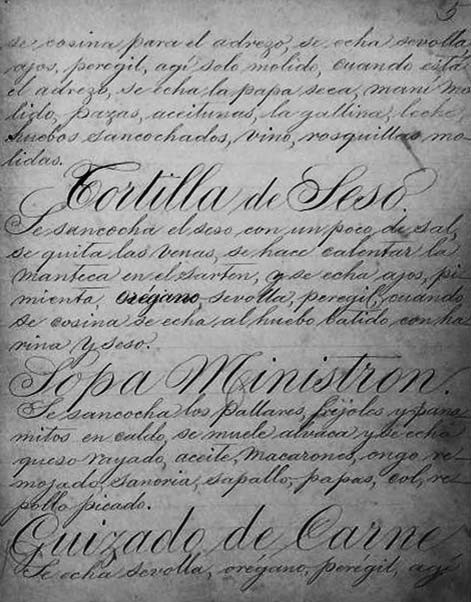 5
se cosina para el adrezo, se echa sevolla
ajos, peregil, agí solo molido, cuando está
el adrezo, se echa la papa seca, maní mo-
lido, pazas, aceitunas, la gallina, leche,
huebos sancochados, vino, rosquillas mo-
lidas.
Tortilla de Seso
Se sancocha el seso con un poco di sal,
se quita las venas, se hace calentar la
manteca en el sarten, y se echa ajos, pi-
mienta, orégano, sevolla, peregil, cuando
se cosina se echa al huebo batido con ha-
rina y seso.
Sopa Ministron.
Se sancocha los pallares, frejoles y
mitos en caldo, se muele alvaca y se echa
queso rayado, aceite, macarones, ongo re-
mojado, sanoria, sapallo, papas, col, re-
pollo picado.
Guizado de Carne
Se echa sevolla, orégano, peregil, agí